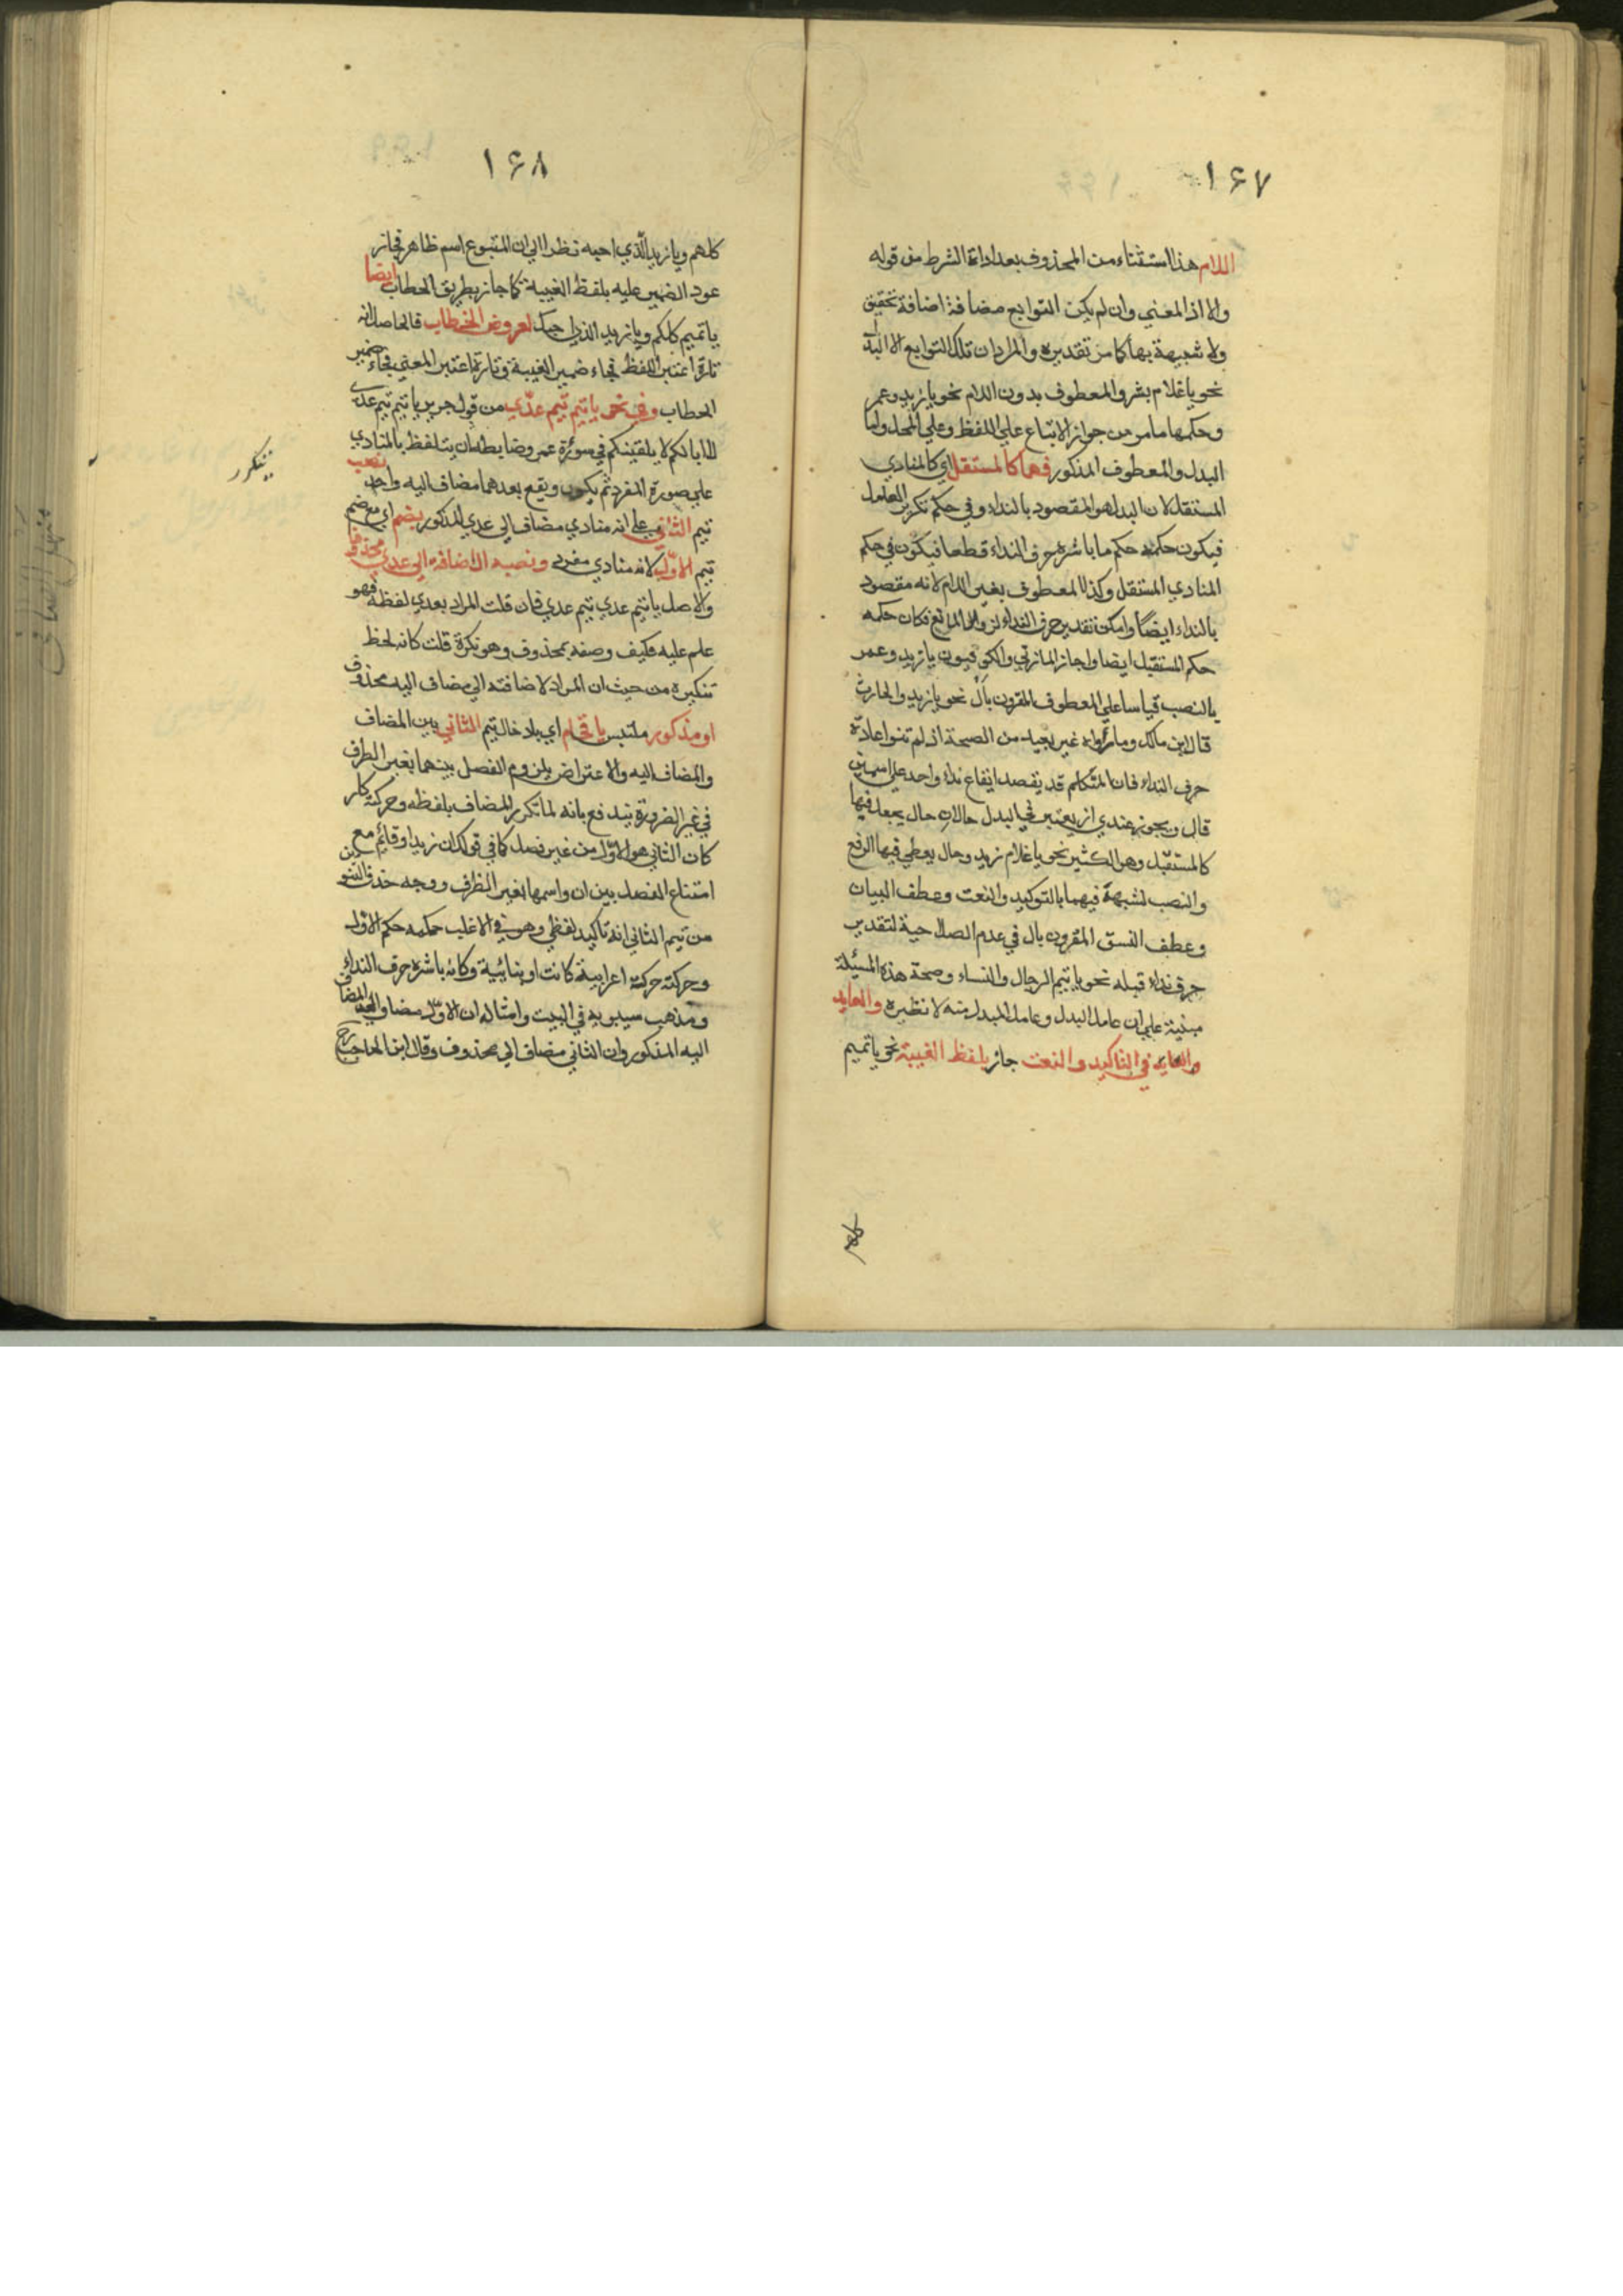 ١۶٧
اللام هذا استثناء من المحذوف بعد اداة الشرط من قوله
والا اذ المعني وان لم يكن التوابع مضافة اضافة تحقيق
ولا شبيهة بها كما مر تقديره والمراد ان تلك التوابع الا البد
نحو يا غلام بشر والمعطوف بدون اللام نحو يا زيد وعمر
وحكمها ما مر من جواز الاتباع علي اللفظ وعلي المحل واما
البدل والمعطوف المذكور فهما كالمستقل اي كالمنادي
المستقل لان البدل هو المقصود بالنداء وفي حكم تكرير العامل
فيكون حكمه حكم ما باشره حرف النداء قطعا فيكون في حكم
المنادي المستقل وكذا المعطوف بغير اللام لانه مقصود
بالنداء ايضاً وامكن تقدير حرف النداء لزوال المانع فكان حكمه
حكم المستقبل ايضا واجاز المازني والكوفيون يا زيد وعمر
بالنصب قياسا علي المعطوف المقرون بأل نحو يا زيد والحارث
قال ابن مالك وما رأوه غير بعيد من الصحة اذ لم تنو اعادة
حرف النداء فان المتكلم قد يقصد ايقاع نداء واحد علي اسمين
قال ويجوز عندي ان يعتبر في البدل حالان حال يجعل فيها
كالمستقبل وهو الكثير نحو يا غلام زيد وحال يعطي فيها الرفع
والنصب لشبهه فيهما بالتوكيد والنعت وعطف البيان
وعطف النسق المقرون بال في عدم الصلاحية لتقدير
حرف نداء قبله نحو يا تيم الرجال والنساء وصحة هذه المسئلة
مبنية علي ان عامل البدل وعامل المبدل منه لا نظيره والعايد
والعايد في التاكيد والنعت جاز بلفظ الغيبة نحو يا تميم
١۶٨
كلهم ويا زيد الذي احبه نظرا الي ان المتبوع اسم ظاهر فجاز
عود الضمير عليه بلفظ الغيبة كما جاز بطريق الخطاب ايضا
يا تميم كلكم ويا زيد الذي احبك لعروض الخطاب فالحاصل انه
تارة اعتبر اللفظ فجاء ضمير الغيبة وتارة اعتبر المعني فجاء ضمير
الخطاب وفي نحو يا تيم تيم عدي من قول جرير يا تيم تيم عدي
لا ابا لكم لا يلقينكم في سوءة عمر وضابطه ان يتلفظ بالمنادي
علي صورة المفرد ثم يكون ويقع بعدهما مضاف اليه واحد نصب
تيم الثاني علي انه منادي مضاف الي عدي المذكور يضم اي مع ضم
تيم الاول لانه منادي مفرد ونصبه الاضافة الي عدي محذوفا
والاصل يا تيم عدي تيم عدي فان قلت المراد بعدي لفظه فهو
علم عليه فكيف وصفه بمحذوف وهو نكرة قلت كانه لحظ
تنكيره من حيث ان المراد لاضافته الي مضاف اليه محذوف
او مذكور ملتبس باقحام اي بادخال تيم الثاني بين المضاف
والمضاف اليه والاعتراض بلزوم الفصل بينهما بغير الطرف
في غير الضرورة يندفع بانه لما تكرر المضاف بلفظه وحركته كار
كان الثاني هو الاول من غير فصل كما في قولك ان زيدا وقائم مع
امتناع الفصل بين ان واسمها بغير الظرف ووجه حذف التنوين
من تيم الثاني انه تاكيد لفظي وهو في الاغلب حكمه حكم الاول
وحركته حركته اعرابية كانت او بنائية وكانه باشره حرف النداء
ومذهب سيبويه في البيت وامثاله ان الاول مضاف الي المضاف
اليه المذكور وان الثاني مضاف الي محذوف وقال ابن الحاجب رح
يتكرر